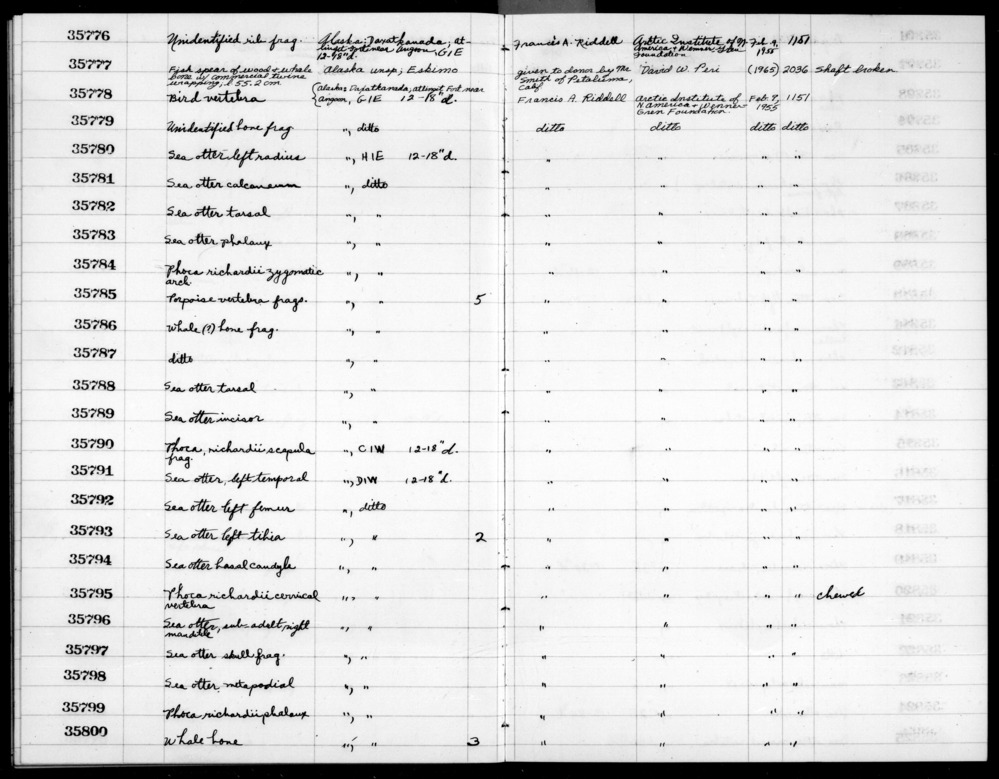 35776 Unidentified rib frag. Alaska: Daxatkanada, at- Francis A. Riddell Arctic Institute of N. Feb. 9, 1151
tempt Fort near Angoon, G1E America & Wenner-Gren 1955
12-18"d. Foundation
35777 Fish spear of wood & whale Alaska unsp; Eskimo given to donor by Mr. David W. Peri (1965) 2036 Shaft broken
bone w/ commercial twine Smith of Petaluma,
wrapping; l 55.2 cm Calif
35778 Bird vertebra (Alaska: Daxatkanada, attempt Fort near Francis A. Riddell Arctic Institute of Feb. 9, 1151
Angoon, G1E 12-18"d. N America & Wenner- 1955
Gren Foundation.
35779 Unidentified bone frag. ", ditto ditto ditto ditto ditto
35780 Sea otter left radius ", H1E 12-18"d. " " " "
35781 Sea otter calcaneum ", ditto " " " "
35782 Sea otter tarsal ", " " " " "
35783 Sea otter phalanx ", " " " " "
35784 Phoca richardii zygomatic ", " " " " "
arch.
35785 Porpoise vertebra frags. ", " 5 " " " "
35786 Whale (?) bone frag. ", " " " " "
35787 ditto ", " " " " "
35788 Sea otter tarsal ", " " " " "
35789 Sea otter incisor ", " " " " "
35790 Phoca, richardii scapula ", C1W 12-18"d. " " " "
frag.
35791 Sea otter, left temporal ", D1W 12-18"d. " " " "
35792 Sea otter left femur ", ditto " " " "
35793 Sea otter left tibia ", " 2 " " " "
35794 Sea otter basal condyle ", " " " " "
35795 Phoca richardii cervical ", " " " " " chewed
vertebra
35796 Sea otter, sub-adult, right ", " " " " "
mandible
35797 Sea otter skull frag. ", " " " " "
35798 Sea otter, metapodial ", " " " " "
35799 Phoca richardii phalanx ", " " " " "
35800 Whale bone ", " 3 " " " "